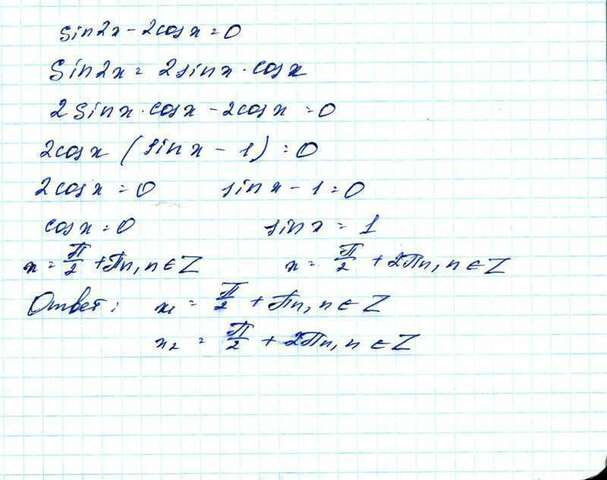 sin2x - 2cosx = 0
sin2x = 2sinx · cosx
2sinx · cosx - 2cosx = 0
2cosx (sinx - 1) = 0
2cosx = 0 sinx - 1 = 0
cosx = 0 sinx = 1
x = π/2 + πn, n ∈ Z x = π/2 + 2πn, n ∈ Z
Ответ: x₁ = π/2 + πn, n ∈ Z
x₂ = π/2 + 2πn, n ∈ Z